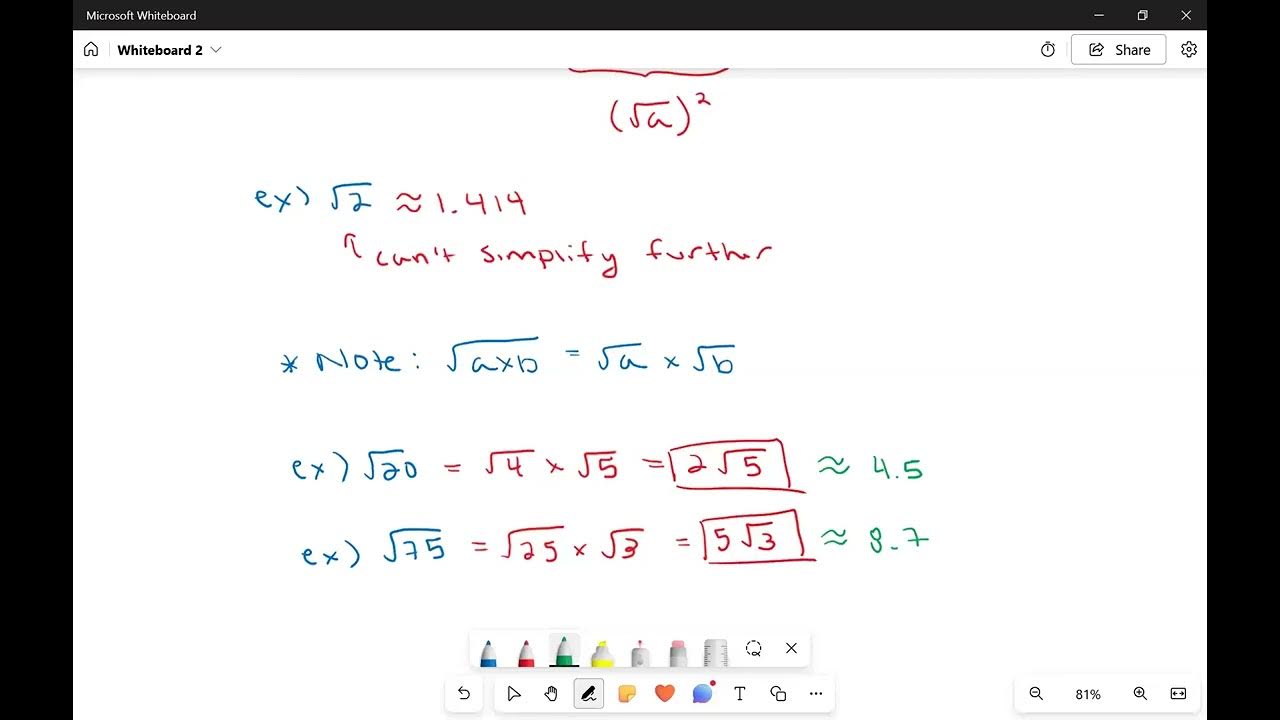 Microsoft Whiteboard
Whiteboard 2
Share
(√a)²
ex) √2 ≈ 1.414
can't simplify further
* Note: √a×b = √a × √b
ex) √20 = √4 × √5 = 2√5 ≈ 4.5
ex) √75 = √25 × √3 = 5√3 ≈ 8.7
T
81%